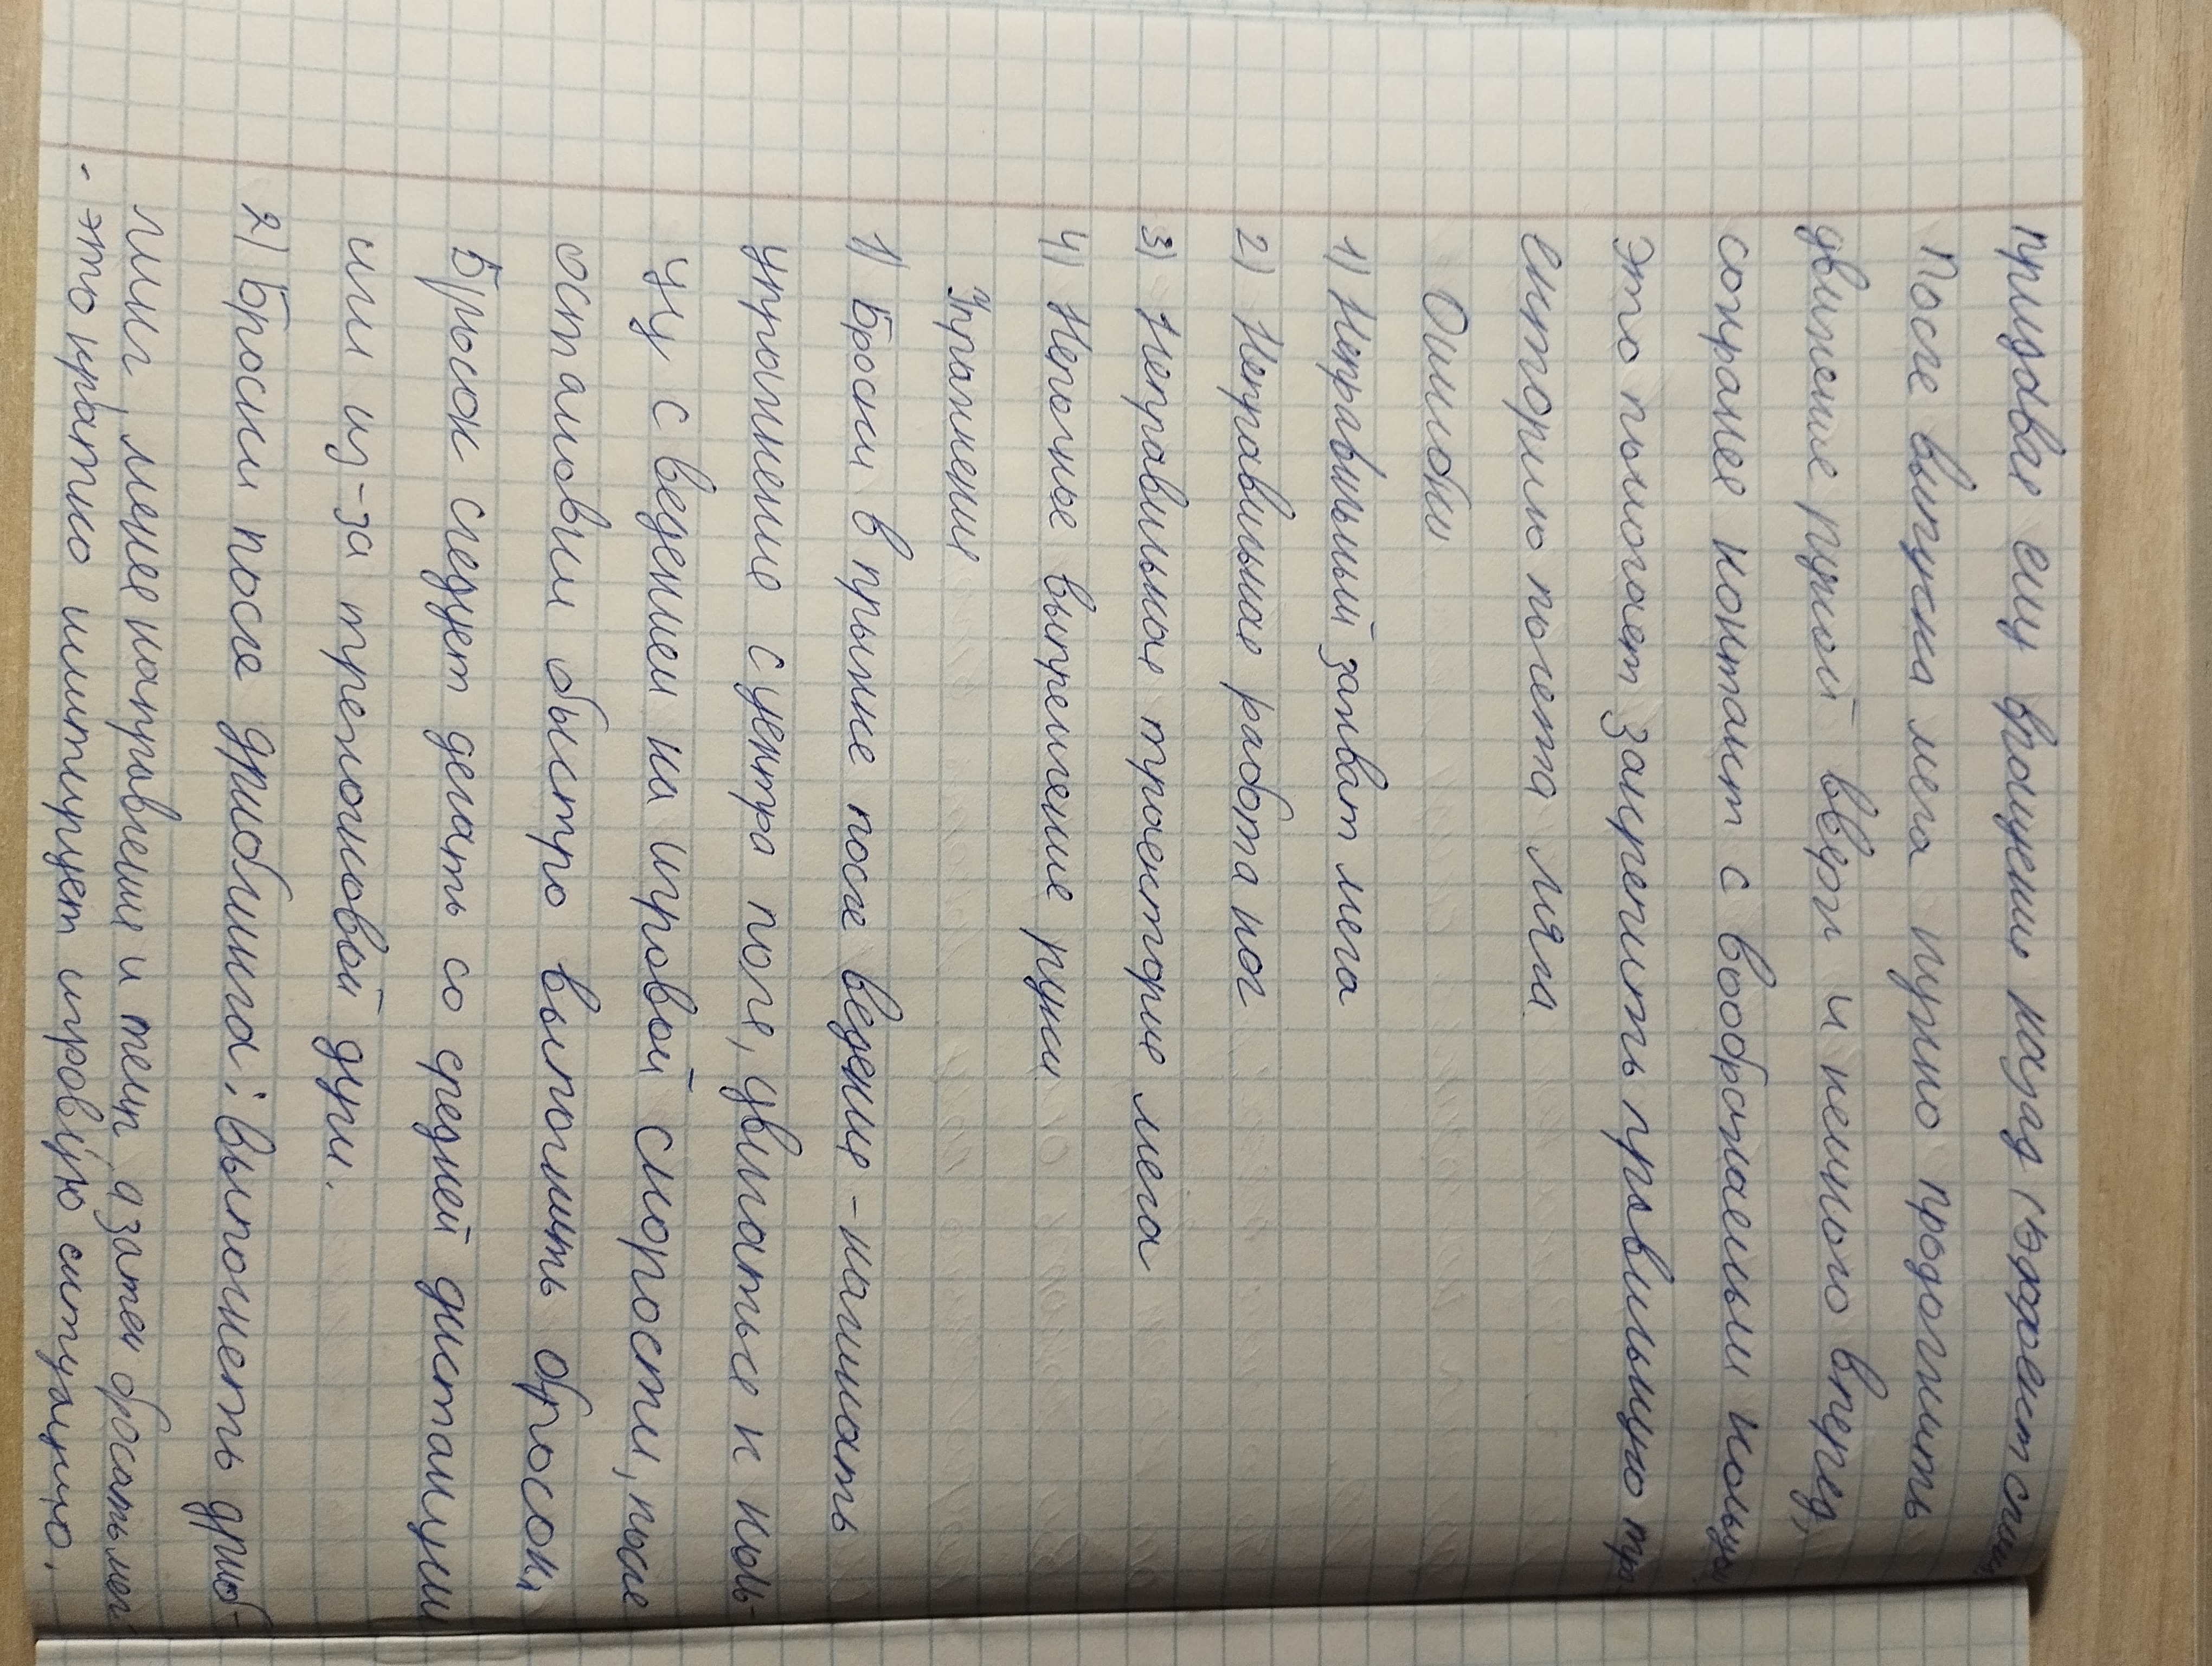 придавая ему вращение назад (эффект спина
После выпуска мяча нужно продолжить
движение рукой вверх и немного вперед,
сохраняя контакт с воображаемым кольцом
это помогает закрепить правильную тра
екторию полета мяча
Ошибки
1) Неправильный захват мяча
2) Неправильная работа ног
3) Неправильная траектория мяча
4) Неполное выпрямление руки
Упражнения
1) Броски в прыжке после ведения - начинать
упражнение с центра поля, двигаться к коль-
цу с ведением на игровой скорости, после
остановки быстро выполнить бросок.
Бросок следует делать со средней дистанции
или из-за трехочковой дуги.
2) Броски после дриблинга: выполнять дриб-
линг, меняя направление и темп, а затем бросать мяч
- это кратко имитирует игровую ситуацию.